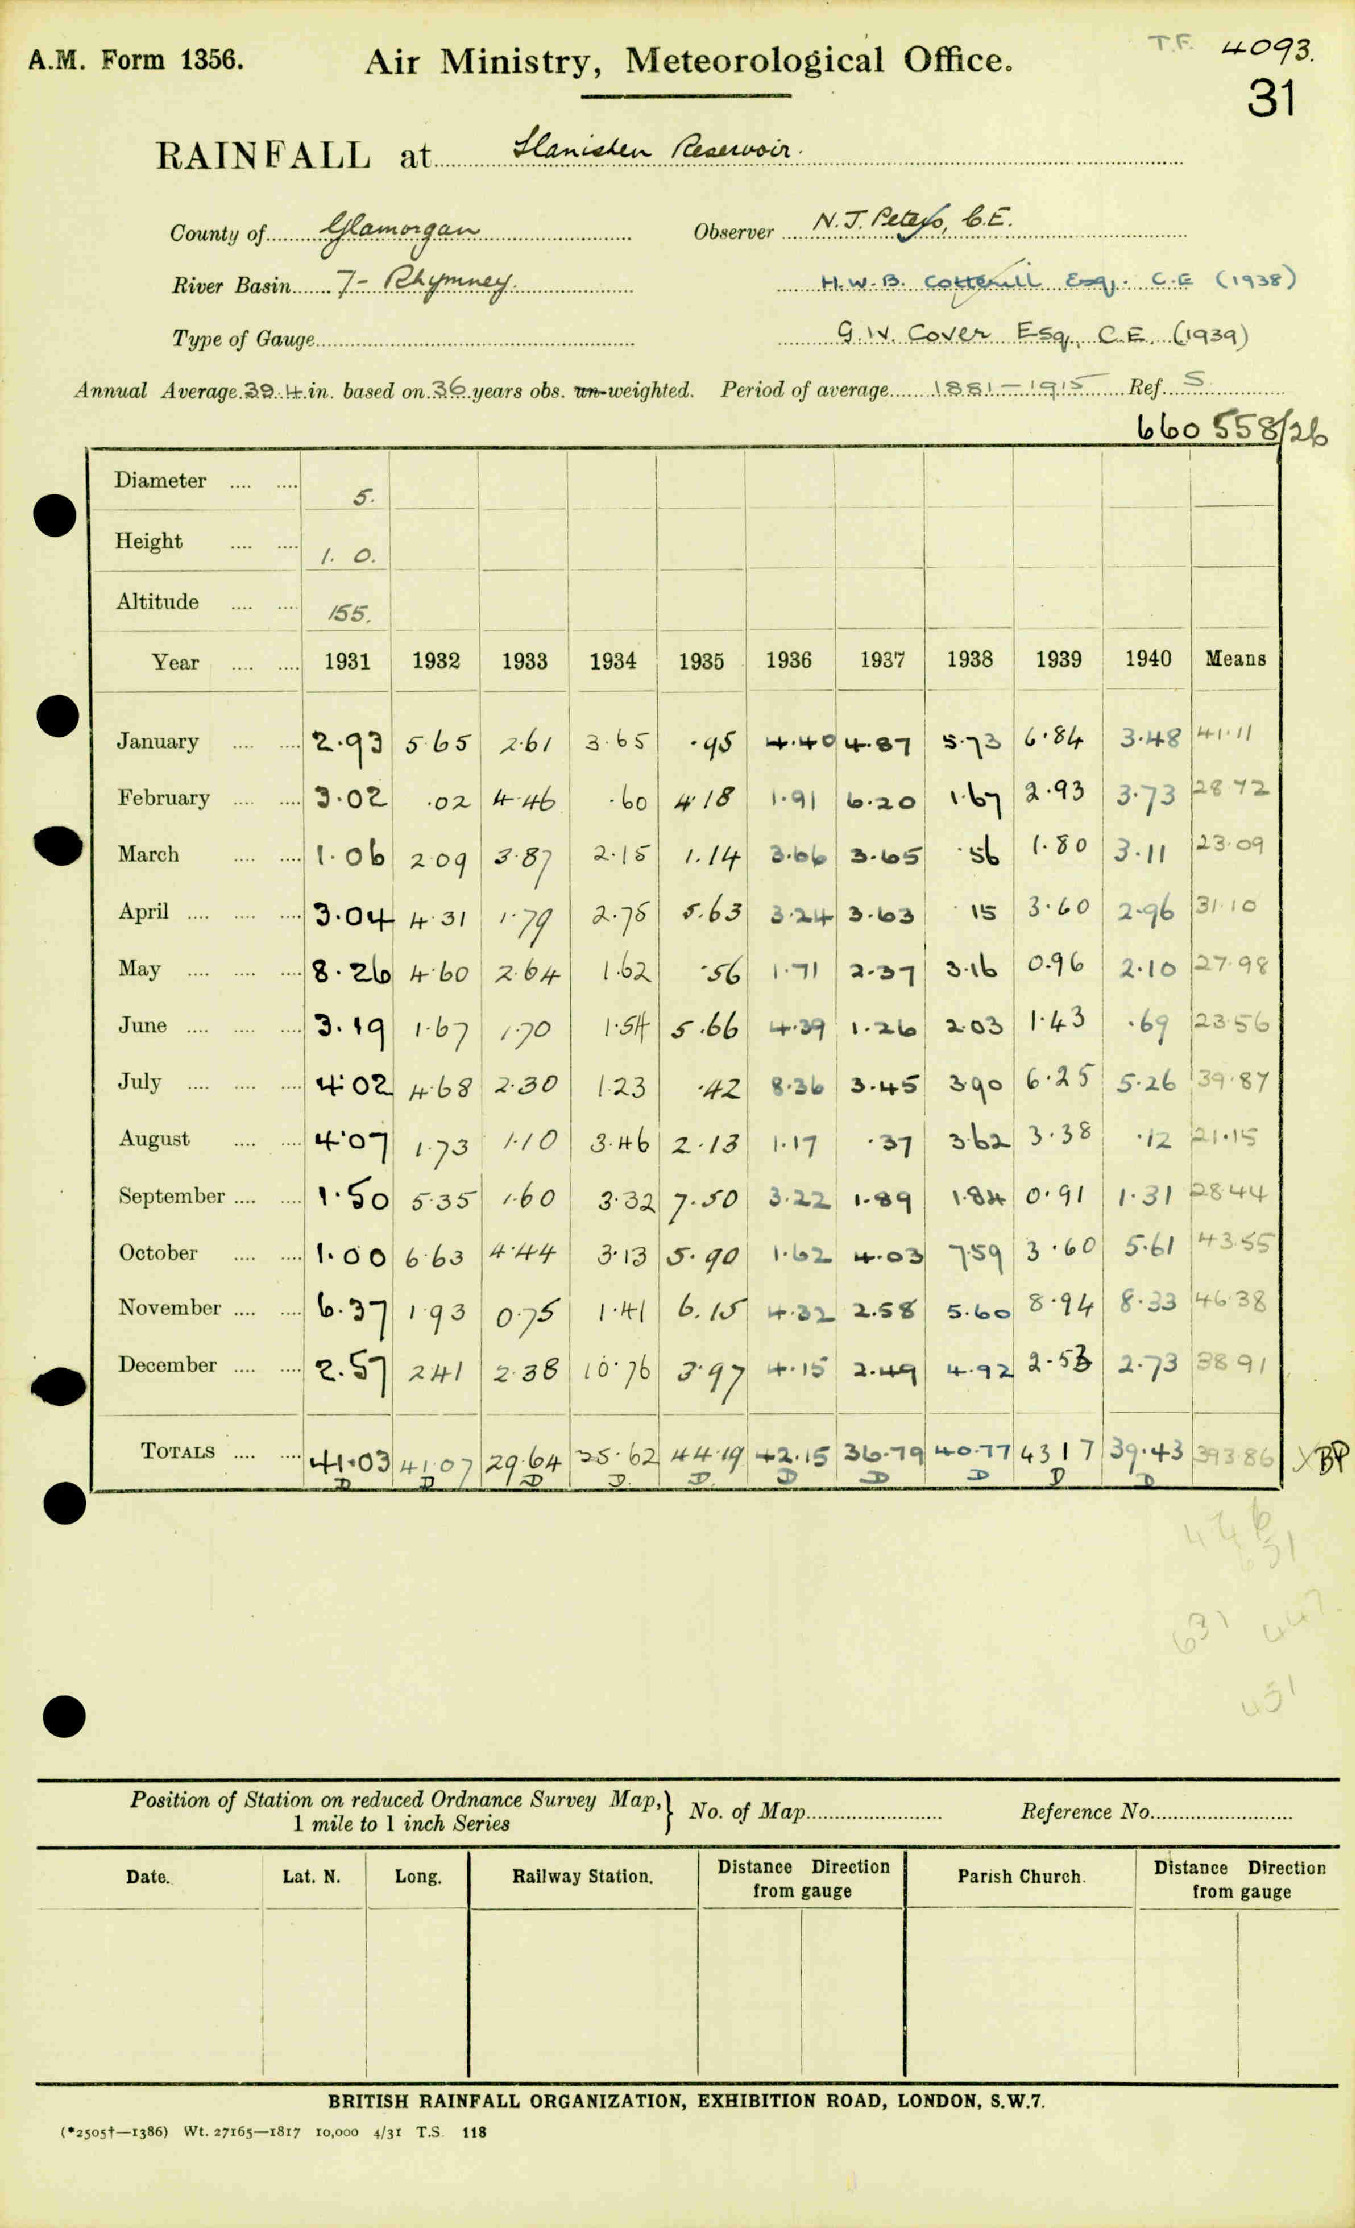 A.M. Form 1356. Air Ministry, Meteorological Office. T.F. 4093.
31
RAINFALL at Llanishen Reservoir.
County of Glamorgan Observer N. J. Peters, C.E.
River Basin 7- Rhymney. H.W.B. Cotterill Esq. C.E (1938)
Type of Gauge G.W. Cover Esq., C.E. (1939)
Annual Average 39.4 in. based on 36 years obs. un-weighted. Period of average 1881-1915 Ref. S
660 558/26
Diameter 5.
Height 1. 0.
Altitude 155.
Year 1931 1932 1933 1934 1935 1936 1937 1938 1939 1940 Means
January 2.93 5.65 2.61 3.65 .95 4.40 4.87 5.73 6.84 3.48 41.11
February 3.02 .02 4.46 .60 4.18 1.91 6.20 1.67 2.93 3.73 28.72
March 1.06 2.09 3.87 2.15 1.14 3.66 3.65 .56 1.80 3.11 23.09
April 3.04 4.31 1.79 2.75 5.63 3.24 3.63 .15 3.60 2.96 31.10
May 8.26 4.60 2.64 1.62 .56 1.71 2.37 3.16 0.96 2.10 27.98
June 3.19 1.67 1.70 1.54 5.66 4.39 1.26 2.03 1.43 .69 23.56
July 4.02 4.68 2.30 1.23 .42 8.36 3.45 3.90 6.25 5.26 39.87
August 4.07 1.73 1.10 3.46 2.13 1.17 .37 3.62 3.38 .12 21.15
September 1.50 5.35 1.60 3.32 7.50 3.22 1.89 1.84 0.91 1.31 28.44
October 1.00 6.63 4.44 3.13 5.90 1.62 4.03 7.59 3.60 5.61 43.55
November 6.37 1.93 0.75 1.41 6.15 4.32 2.58 5.60 8.94 8.33 46.38
December 2.57 2.41 2.38 10.76 3.97 4.15 2.49 4.92 2.53 2.73 38.91
TOTALS 41.03 41.07 29.64 35.62 44.19 42.15 36.79 40.77 43.17 39.43 393.86 X BP
D D D D. D. D D D D D
631
Position of Station on reduced Ordnance Survey Map, 1 mile to 1 inch Series } No. of Map Reference No.
Date. Lat. N. Long. Railway Station. Distance Direction from gauge Parish Church. Distance Direction from gauge
BRITISH RAINFALL ORGANIZATION, EXHIBITION ROAD, LONDON, S.W.7.
(*2505†—1386) Wt. 27165—1817 10,000 4/31 T.S. 118